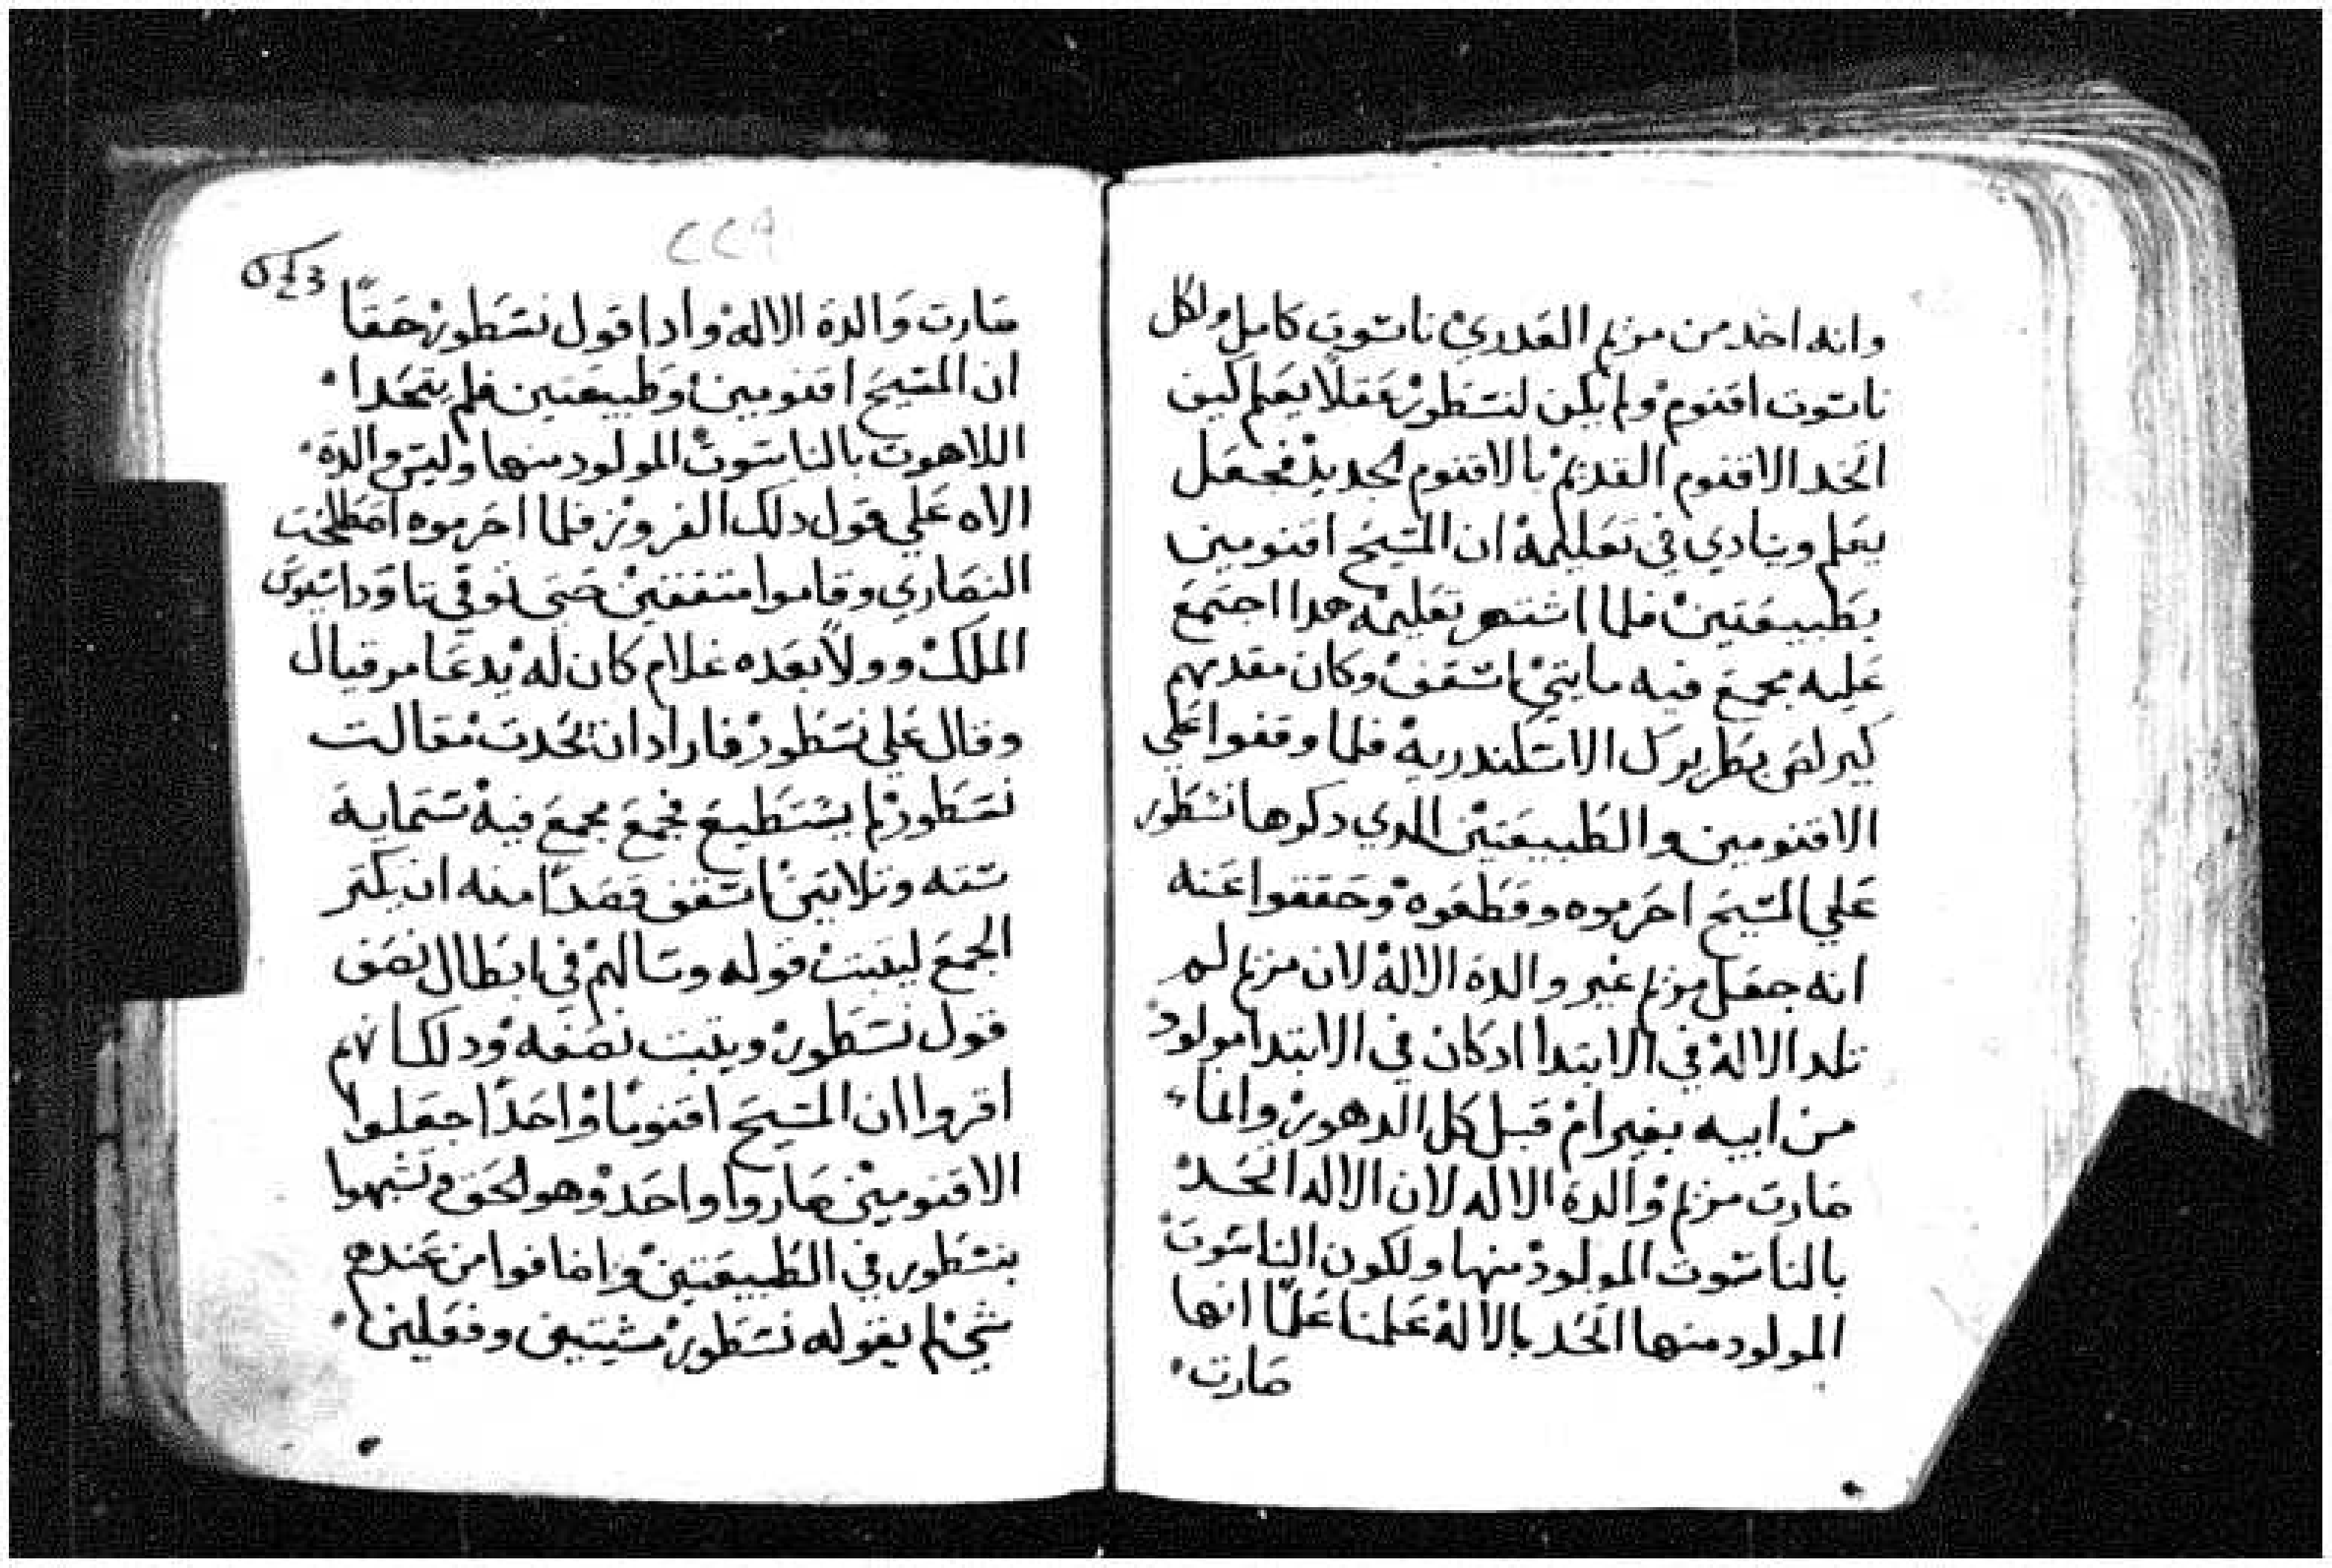 وانه اخد من مريم العدري ناسوت كامل ولكل
ناسوت اقنوم ولم يكن لنسطور عقلا يعلم كيف
اتحد الاقنوم القديم بالاقنوم الجديد فجعل
يعلم وينادي في تعليمه ان المسيح اقنومين
بطبيعتين فلما اشتهر تعليمه هدا اجتمع
عليه مجمع فيه مايتي اسقف وكان مقدمهم
كيرلص بطريرك الاسكندريه فلما وقفوا علي
الاقنومين والطبيعتين الدي دكرها نسطور
علي المسيح احرموه وقطعوه وحققوا عنه
انه جعل مريم غير والدة الاله لان مريم لم
تلد الاله في الابتدا ادكان في الابتدا مولود
من ابيه بغير ام قبل كل الدهور وانما
صارت مريم والدة الاله لان الاله اتحد
بالناسوت المولود منها ولكون الناسوت
المولود منها اتحد بالاله علمنا علما انها
صارت
٢٢٩
صارت والدة الاله وادا قول نسطور حقا
ان المسيح اقنومين وطبيعتين فلم يتحدا
اللاهوت بالناسوت المولود منها وليس والدة
الاه علي قول دلك الفروز فلما احرموه اصطلحت
النصاري وقاموا متفقين حتي توفي تاودا سيوس
الملك وولا بعده غلام كان له يدعا مرقيال
وقال علي نسطور فاراد ان يحدت مقالت
نسطور لم يستطيع فجمع مجمع فيه ستمايه
سته وتلاتين اسقف قصدا منه ان يكتر
الجمع ليتبت قوله وسالهم في ابطال نصف
قول نسطور ويتبت نصفه ودلك انهم
اقروا ان المسيح اقنوما واحدا جعلوا
الاقنومين صاروا واحد وهو الحق وتشبهوا
بنسطور في الطبيعتين واضافوا من عندهم
شي لم يقوله نسطور مشيتين وفعلين